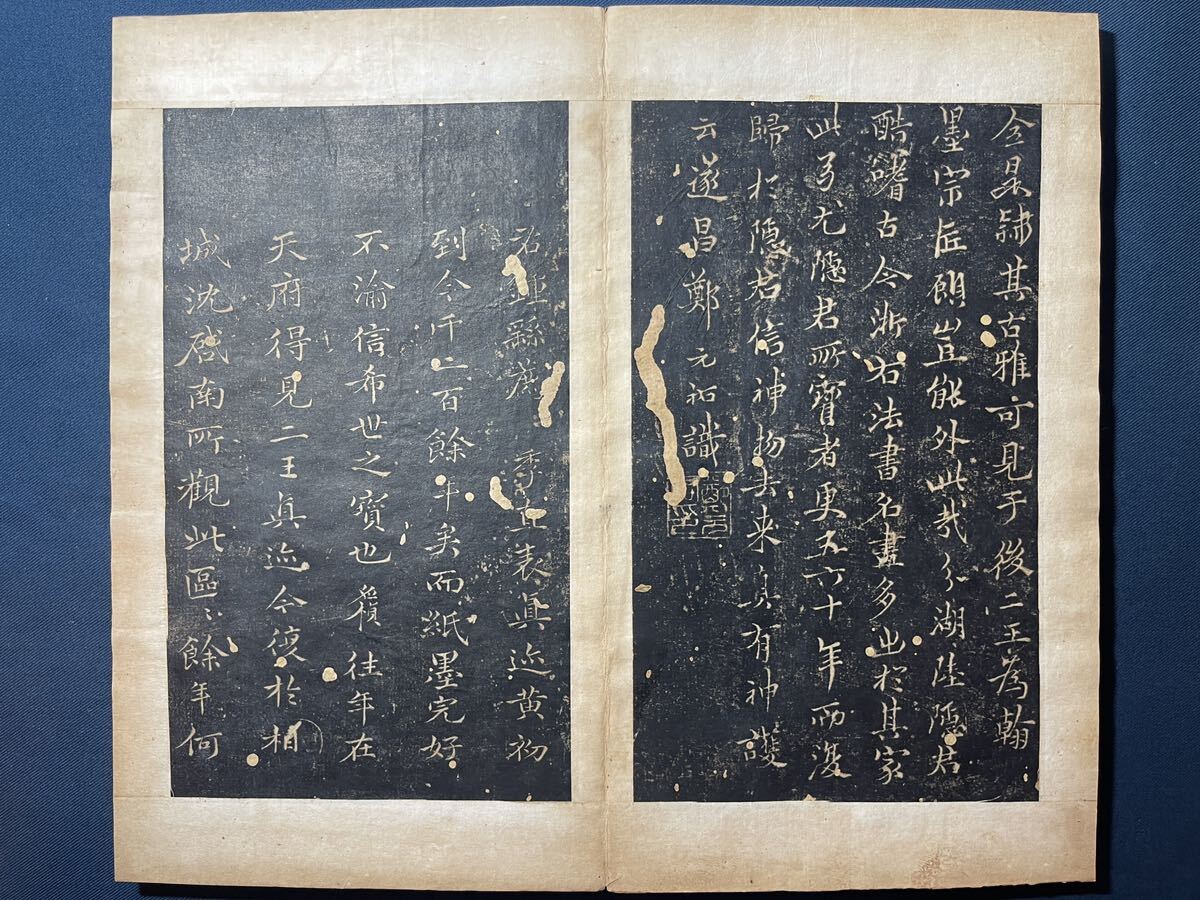 今最隸其古雅可見于後二王為翰
墨宗匠顧豈能外此哉分湖陸隱君
酷耆古今浙右法書名畫多出於其家
此乃尤隱君所寶者更五六十年而復
歸於隱君信神物去来自有神護
云遂昌鄭元祐識
右鍾繇薦季直表真迹黄初
到今千二百餘年矣而紙墨完好
不渝信希世之寶也獲往年在
天府得見二王真迹今復於相
城沈啓南所觀此區〻餘年何